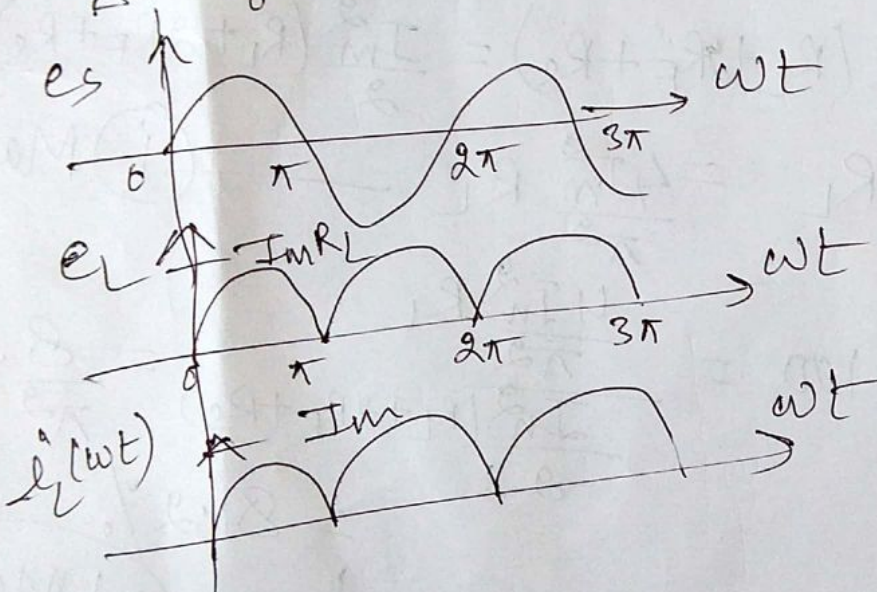 es ωt
0 π 2π 3π
eL ImRL ωt
0 π 2π 3π
iL(ωt) Im ωt